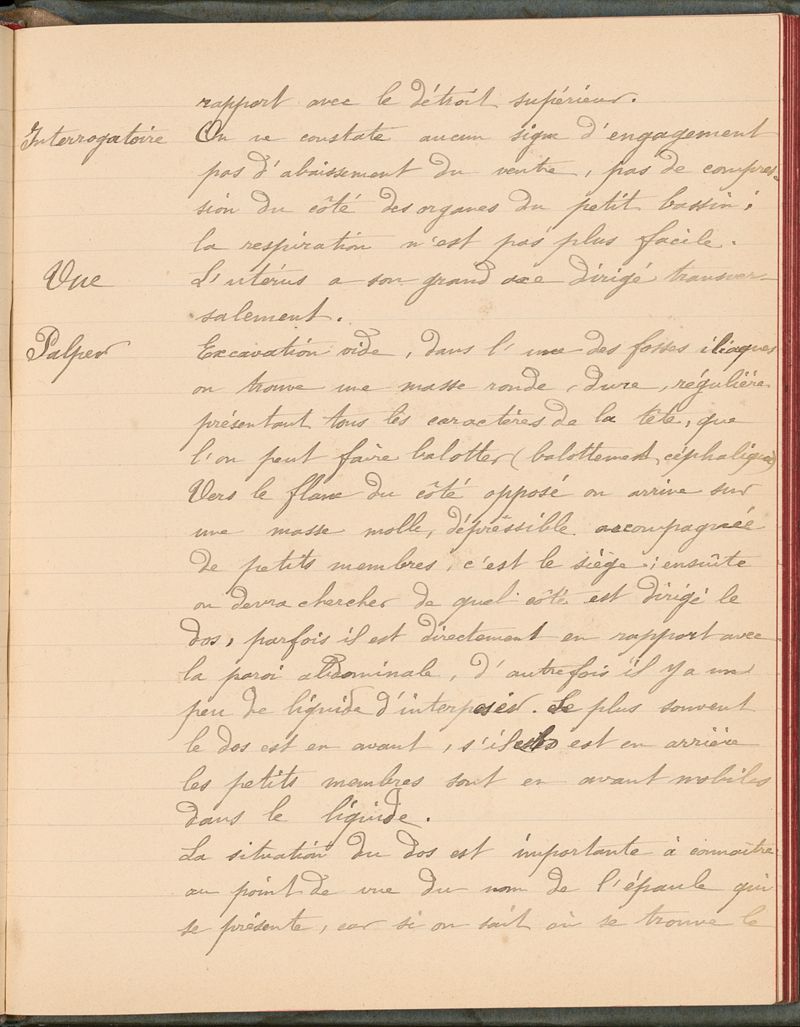 rapport avec le détroit supérieur.
Interrogatoire On ne constate aucun signe d'engagement
pas d'abaissement du ventre, pas de compres-
sion du côté des organes du petit bassin ;
la respiration n'est pas plus facile.
Vue L'utérus a son grand axe dirigé transver-
salement.
Palper Excavation vide, dans l'une des fosses iliaques
on trouve une masse ronde, dure, régulière
présentant tous les caractères de la tête, que
l'on peut faire balotter (balottement céphalique)
Vers le flanc du côté opposé on arrive sur
une masse molle, dépressible accompagnée
de petits membres, c'est le siège ; ensuite
on devra chercher de quel côté est dirigé le
dos, parfois il est directement en rapport avec
la paroi abdominale, d'autrefois il y a un
peu de liquide d'interposer. Le plus souvent
le dos est en avant, s'il est en arrière
les petits membres sont en avant mobiles
dans le liquide.
La situation du dos est importante à connaître
au point de vue du nom de l'épaule qui
se présente, car si on sait où se trouve le